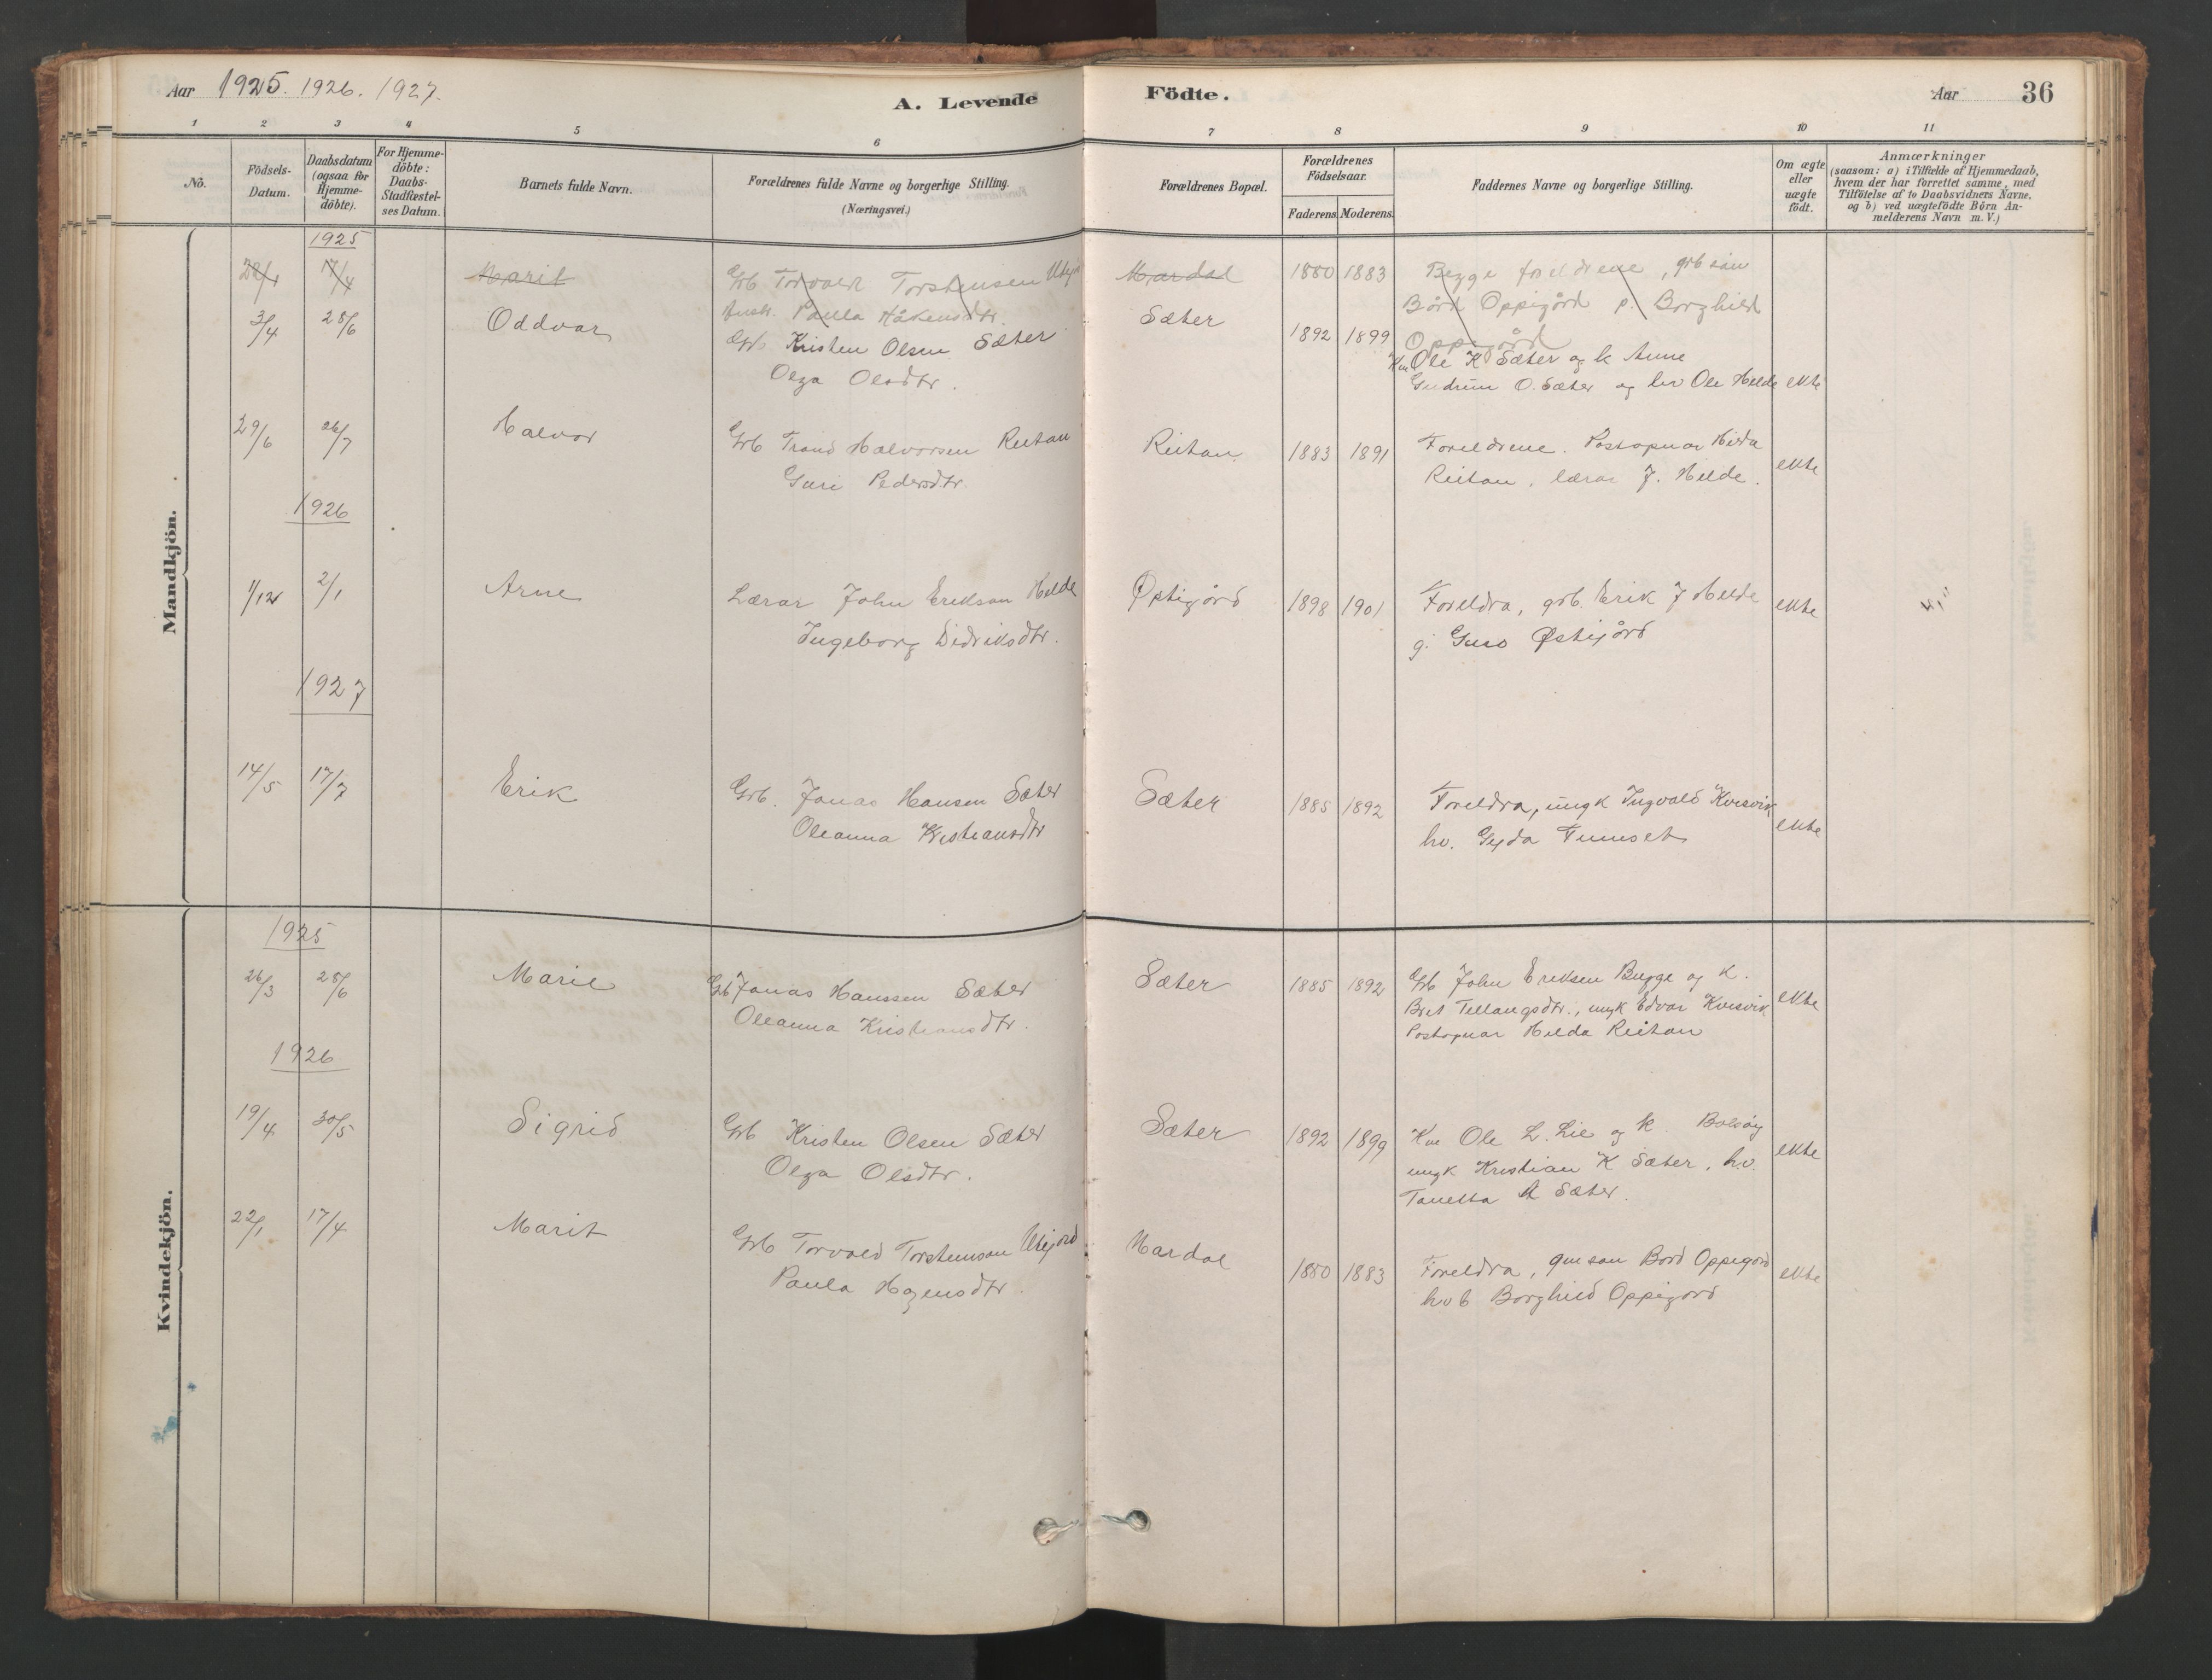 Aar 1925. 1926. 1927.
A. Levende Födte.
Aar 36
1 2 3 4 5 6 7 8 9 10 11
No.
Födsels-Datum.
Daabsdatum (ogsaa for Hjemme-döbte).
For Hjemme-döbte: Daabs-Stadfæstel-ses Datum.
Barnets fulde Navn.
Forældrenes fulde Navne og borgerlige Stilling.
(Næringsvei.)
Forældrenes Bopæl.
Forældrenes Födselsaar.
Faderens. Moderens.
Faddernes Navne og borgerlige Stilling.
Om ægte eller uægte födt.
Anmærkninger
(saasom: a) i Tilfælde af Hjemmedaab,
hvem der har forrettet samme, med
Tilföielse af to Daabsvidners Navne,
og b) ved uægtefödte Börn An-
melderens Navn m. V.)
Mandkjön.
1925
17/4 Marit Grb Torvald Torstensen Mardal 1880 1883 Begge foreldrene, grb søn
Paula Håkensdtr. Bård Oppigård p. Borghild
Oppigård
3/4 28/6 Oddvar Grb Kristen Olsen Sæter Sæter 1892 1899 Km Ole K Sæter og k Anne
Olga Olsdtr. Gudrun O. Sæter og hv Ole Helde ekte
29/6 26/7 Halvor Grb Trond Halvorsen Reitan Reitan 1883 1891 Foreldrene. Postopnar Hilda ekte
Guri Pedersdtr. Reitan, lærar J. Helde.
1926
1/12 2/1 Arne Lærar John Erikson Helde Østigård 1898 1901 Foreldra, grb. Erik J Helde ekte
Ingeborg Didriksdtr. g. Guro Østigård
1927
14/5 17/7 Erik Grb. Jonas Hansen Sæter Sæter 1885 1892 Foreldra, ungk Ingvald Kvisvik ekte
Oleanna Kristiansdtr hv. Gyda Tunnset
Kvindekjön.
1925
26/3 28/6 Marie Grb Jonas Hanssen Sæter Sæter 1885 1892 Grb John Eriksen Bugge og k. ekte
Oleanna Kristiansdtr. Brit Tellangsdtr., ungk Edvar Kvisvik
Postopnar Hilda Reitan
1926
19/4 30/5 Sigrid Grb Kristen Olsen Sæter Sæter 1892 1899 Km Ole L. Lie og k. Bolsøy ekte
Olga Olsdtr. ungk Kristian K Sæter, hv.
Tanetta A Sæter.
22/1 17/4 Marit Grb Torvald Torstenson Utigård Mardal 1880 1883 Foreldra, gmson Bård Oppigård ekte
Paula Hogensdtr. hv b Borghild Oppigård